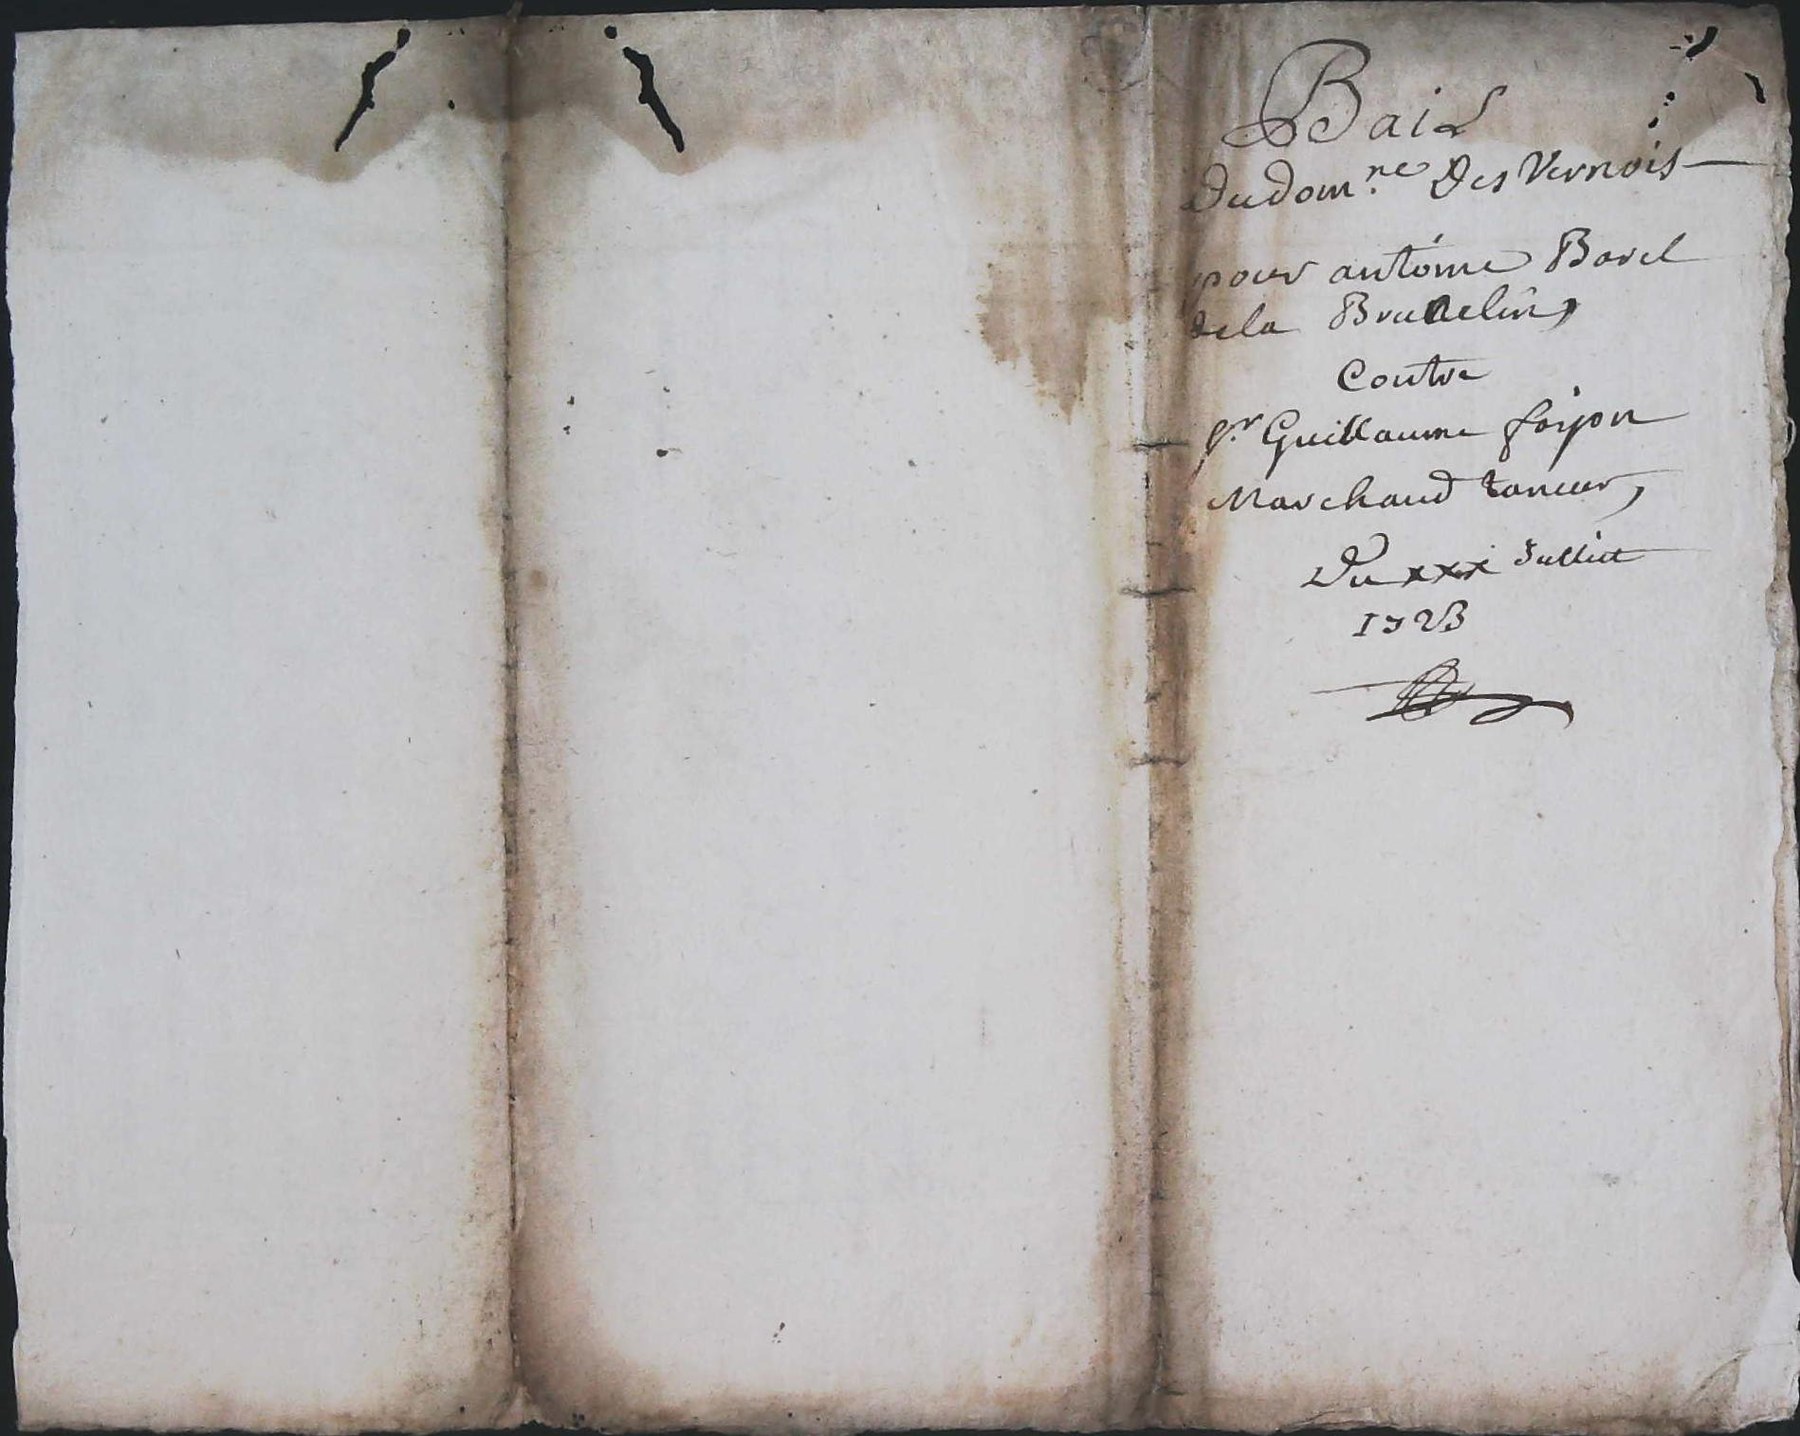 Bail
Du dom.ne Des Vernois
pour antoine Borel
de la Brunelin,
Contre
Sr Guillaume foijon
Marchand tanneur,
Du xxxi Julliet
1723